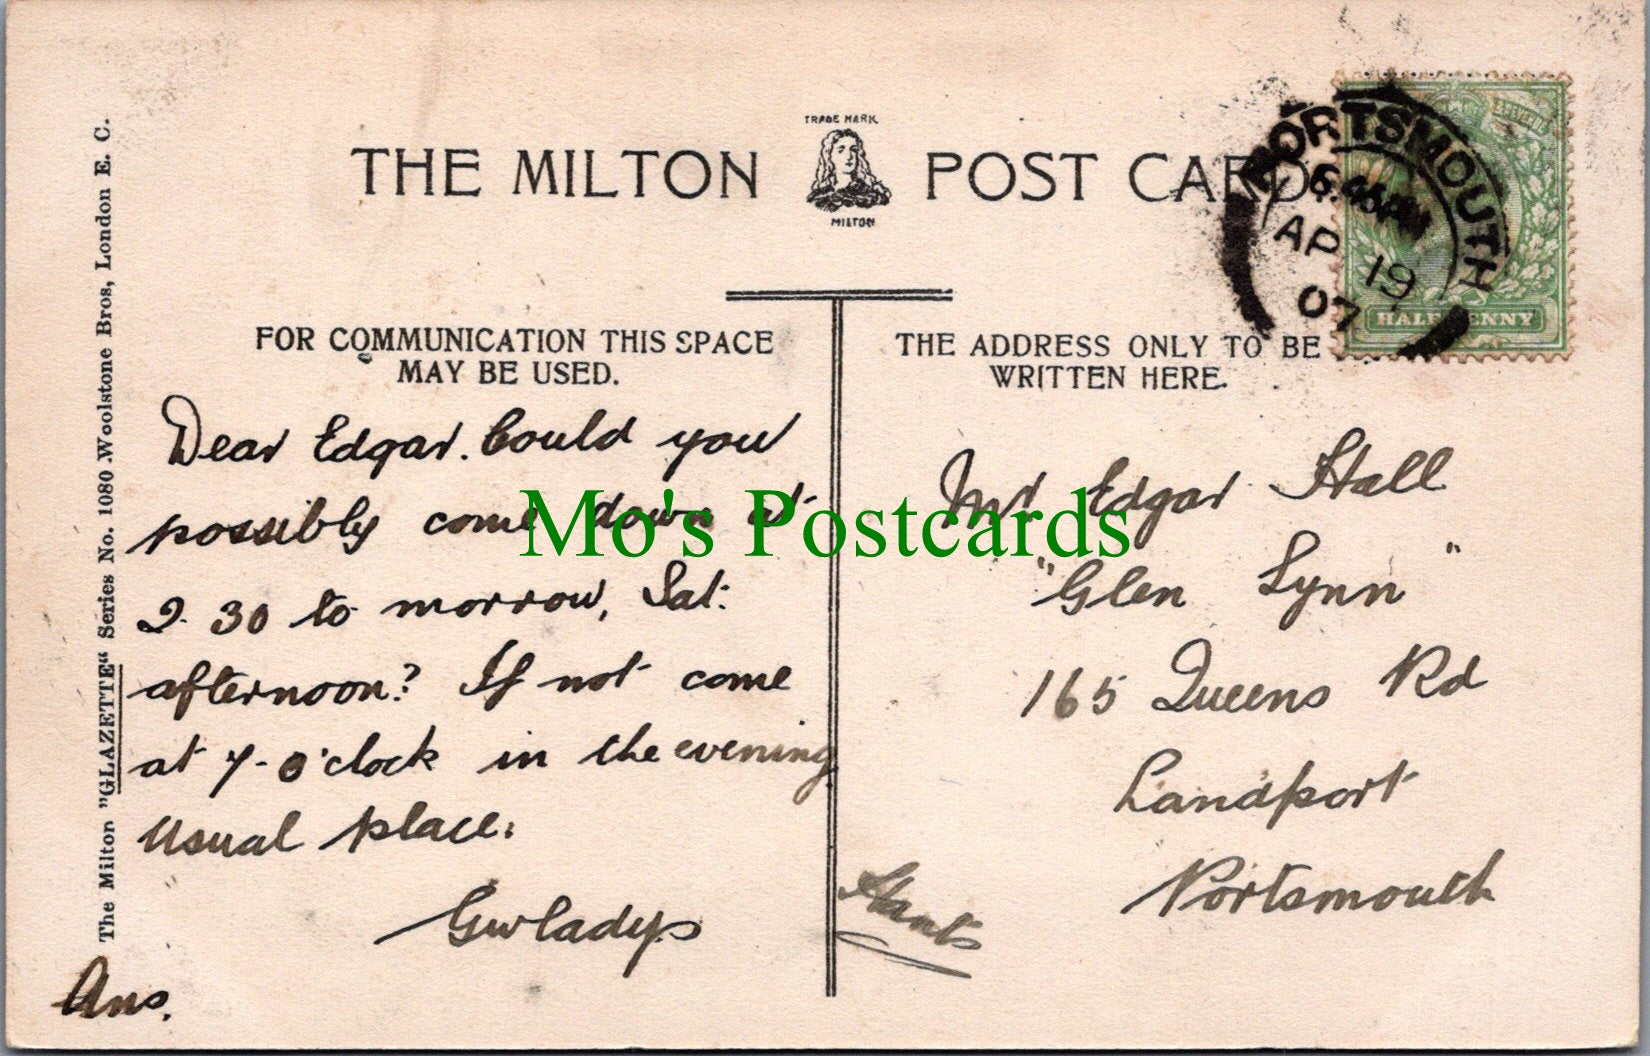 TRADE MARK
THE MILTON POST CARD
MILTON
PORTSMOUTH
6.45AM
AP 19
07
HALFPENNY
FOR COMMUNICATION THIS SPACE
MAY BE USED.
THE ADDRESS ONLY TO BE
WRITTEN HERE.
The Milton "GLAZETTE" Series No. 1080 Woolstone Bros, London E. C.
Dear Edgar. Could you
possibly come down at
2.30 to morrow, Sat:
afternoon? If not come
at 7-o'clock in the evening
usual place.
Gwladys
Ans.
Mr Edgar Hall
"Glen Lynn"
165 Queens Rd
Landport
Portsmouth
Hants
Mo's Postcards